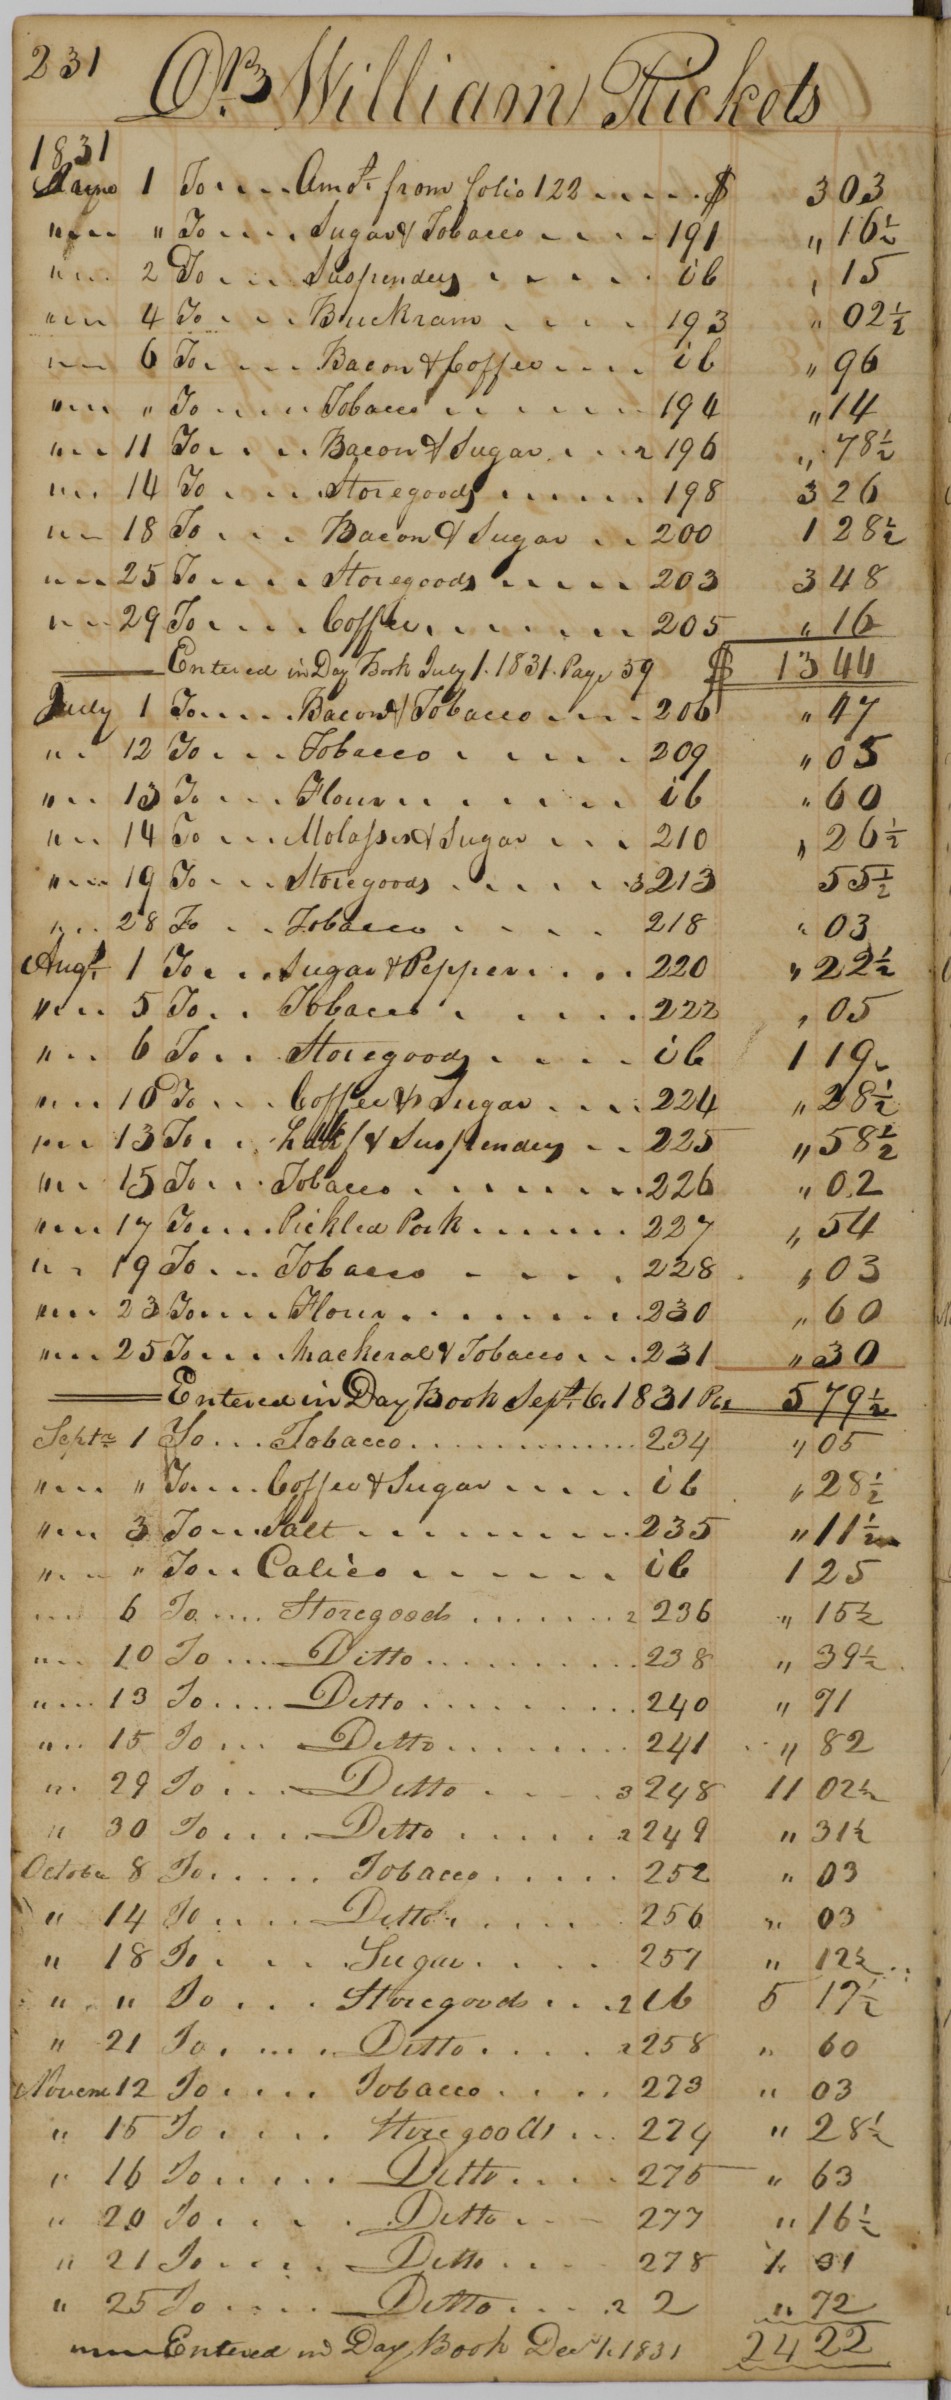 231
Dr. William Rickets
1831
1 To . . . Amt. from folio 122 . . . . . $ 3 03
" " " To . . . . Sugar & Tobacco . . . . . 191 " 16½
" " 2 To . . . Suspenders . . . . . . ib " 15
" " 4 To . . . Buckram . . . . 193 " 02½
" " 6 To . . . Bacon & Coffee . . . . ib " 96
" " " To . . . . Tobacco . . . . . . . 194 " 14
" " 11 To . . . Bacon & Sugar . . . 2 196 " 78½
" " 14 To . . . Storegoods . . . . . . 198 3 26
" " 18 To . . . Bacon & Sugar . . 200 1 28½
" " 25 To . . . . Storegoods . . . . . 203 3 48
" " 29 To . . . . Coffee . . . . . . . 205 " 16
Entered in Day Book July 1. 1831. Page 59 $ 13 44
July 1 To . . . . Bacon & Tobacco . . . . 206 " 47
" " 12 To . . . Tobacco . . . . . . 209 " 05
" " 13 To . . . Flour . . . . . . . ib " 60
" " 14 To . . . Molasses & Sugar . . . 210 " 26½
" " 19 To . . . Storegoods . . . . . 3 213 55½
" " 28 To . . Tobacco . . . . . 218 " 03
Augt. 1 To . . . Sugar & Pepper . . . . 220 " 22½
" " 5 To . . Tobacco . . . . . . 222 " 05
" " 6 To . . . Storegoods . . . . . ib 1 19
" " 10 To . . . Coffee & Sugar . . . . 224 " 28½
" " 13 To . . . & Suspenders . . 225 " 58½
" " 15 To . . . Tobacco . . . . . . . . 226 " 02
" " 17 To . . . Pickled Pork . . . . . . 227 " 54
" " 19 To . . . Tobacco . . . . . 228 " 03
" " 23 To . . . Flour . . . . . . . . 230 " 60
" " 25 To . . . . Mackeral & Tobacco . . . 231 " 30
Entered in Day Book Sept. 6. 1831 Pa 5 79½
Septr. 1 To . . . Tobacco . . . . . . . . . . . 234 " 05
" " " To . . . Coffee & Sugar . . . . . ib " 28½
" " 3 To . . . Salt . . . . . . . . . 235 " 11½
" " " To . . Calico . . . . . . . ib 1 25
" " 6 To . . . . Storegoods . . . . . . . 2 236 " 15½
" " 10 To . . . . Ditto . . . . . . . . . . 238 " 39½
" " 13 To . . . . Ditto . . . . . . . . . 240 " 71
" " 15 To . . . Ditto . . . . . . . . 241 " 82
" " 29 To . . . Ditto . . . . 3 248 11 02½
" 30 To . . . . Ditto . . . . . . 2 249 " 31½
October 8 To . . . . . Tobacco . . . . . . 252 " 03
" 14 To . . . . Ditto . . . . . . 256 " 03
" 18 To . . . . Sugar . . . . . 257 " 12½
" " To . . . . Storegoods . . . 2 ib 5 17½
" 21 To . . . . . Ditto . . . . . 2 258 " 60
Novem 12 To . . . . Tobacco . . . . . 273 " 03
" 15 To . . . . . Storegoods . . . 274 " 28½
" 16 To . . . . . Ditto . . . . 275 " 63
" 20 To . . . . . Ditto . . . 277 " 16½
" 21 To . . . . Ditto . . . 278 1 31
" 25 To . . . . Ditto . . . . 2 2 " 72
Entered in Day Book Decr 1. 1831 24 22